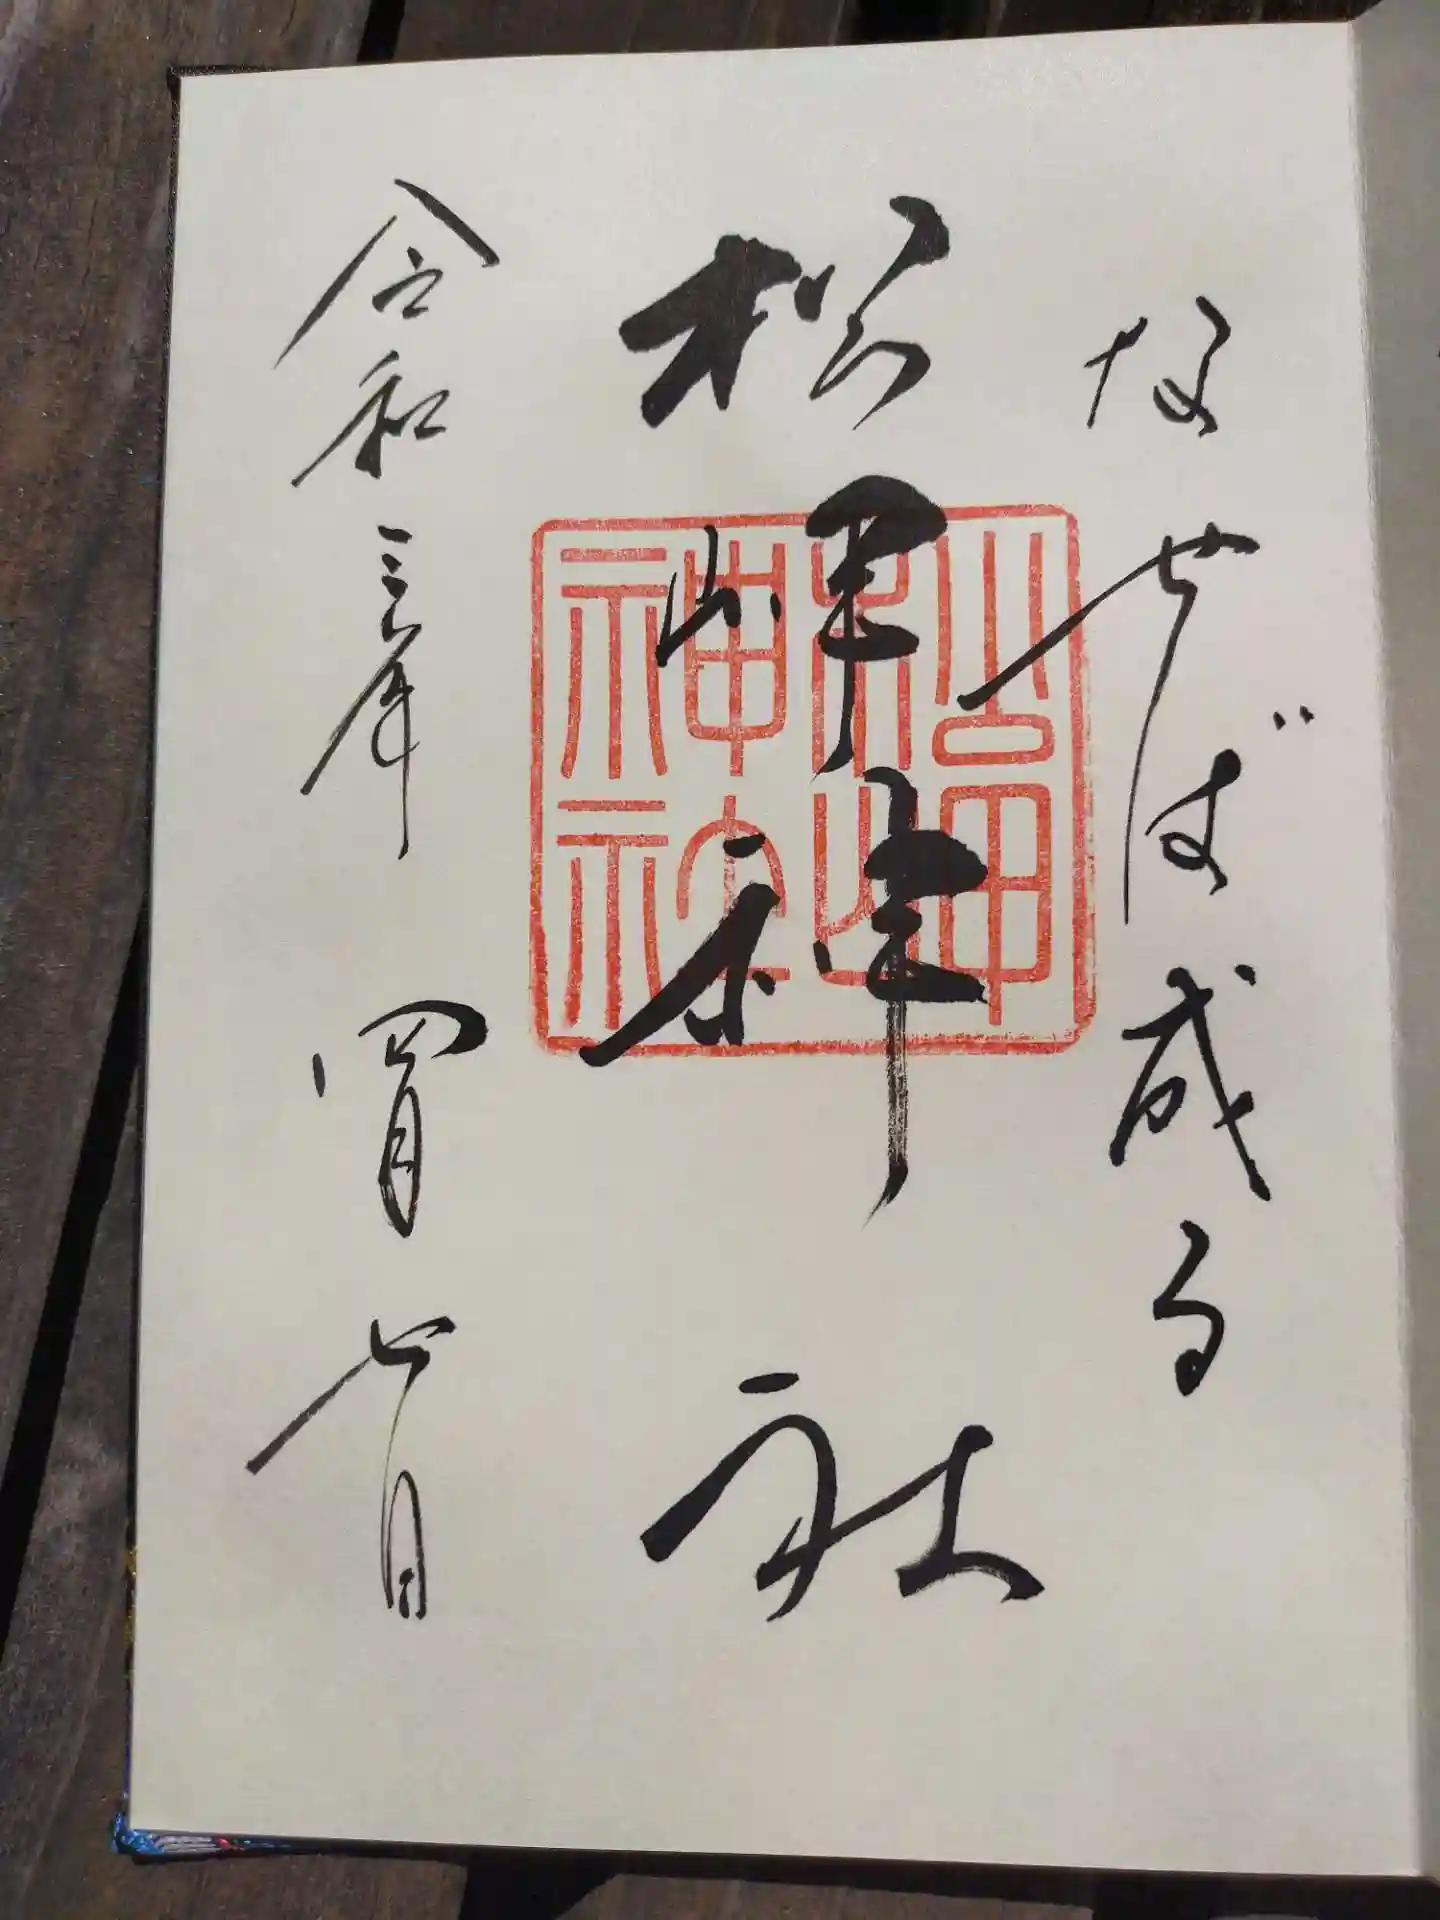 なせば成る
松岬神社
令和三年四月七日
松岬
神社